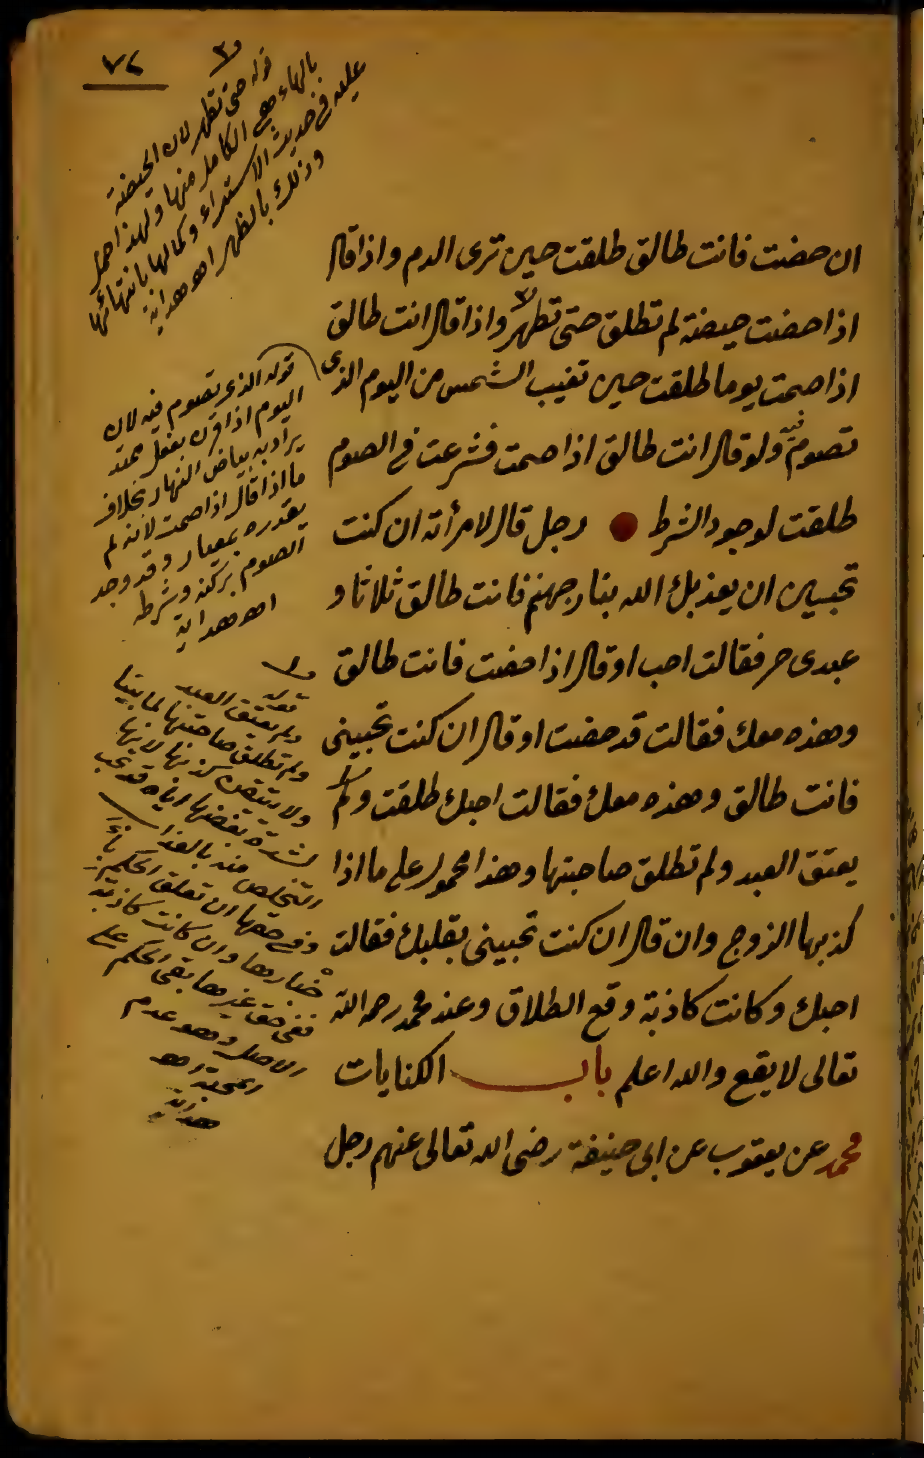 ٧٢
ان حضت فانت طالق طلقت حين ترى الدم واذا قال
اذا حضت حيضة لم تطلق حتى تطهر واذا قال انت طالق
اذا صمت يوما طلقت حين تغيب الشمس من اليوم الذى
تصوم فيه ولو قال انت طالق اذا صمت فشرعت فى الصوم
طلقت لوجود الشرط رجل قال لامرأته ان كنت
تحبين ان يعذبك الله بنار جهنم فانت طالق ثلاثا و
عبدى حر فقالت احب او قال اذا حضت فانت طالق
وهذه معك فقالت قد حضت او قال ان كنت تحبينى
فانت طالق وهذه معك فقالت احبك طلقت ولم
يعتق العبد ولم تطلق صاحبتها وهذا محمول على ما اذا
كذبها الزوج وان قال ان كنت تحبينى بقلبك فقالت
احبك وكانت كاذبة وقع الطلاق وعند محمد رحمه الله
تعالى لا يقع والله اعلم باب الكنايات
محمد عن يعقوب عن ابى حنيفة رضى الله تعالى عنهم رجل
قوله حتى تطهر لان الحيضة
بالهاء هى الكامل منها ولهذا حمل
عليه فى حديث الاستبراء وكمالها بانتهائها
وذلك بالطهر اهـ هداية
قوله الذى تصوم فيه لان
اليوم اذا قرن بفعل ممتد
يراد به بياض النهار بخلاف
ما اذا قال اذا صمت لانه لم
يقدره بمعيار وقد وجد
الصوم بركنه وشرطه
اهـ هداية
قوله
ولم يعتق العبد
ولم تطلق صاحبتها لما بينا
ولا يتيقن كذبها لانها
لشدة بغضها اياه قد تحب
التخلص منه بالعذاب
وفى حقها ان تعلق الحكم
باخبارها وان كانت كاذبة
ففى حق غيرها بقى الحكم على
الاصل وهو عدم
المحبة اهـ
هداية